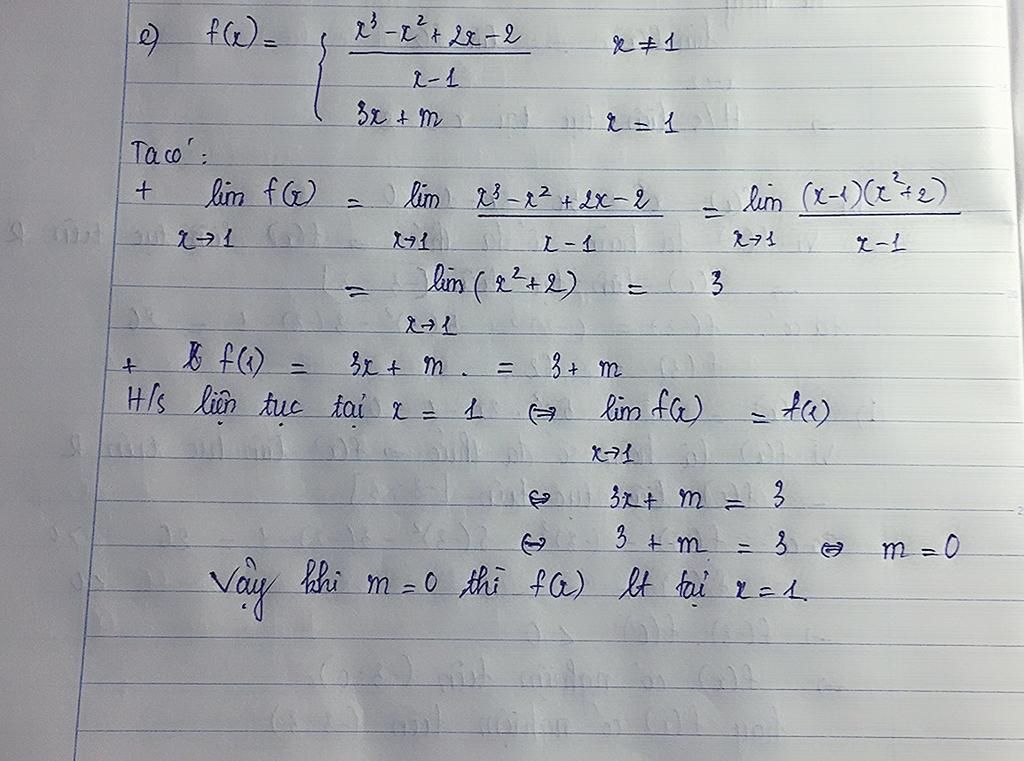 e) f(x) = { x³ - x² + 2x - 2 / x - 1   x ≠ 1
3x + m   x = 1
Ta có :
+ lim f(x) = lim x³ - x² + 2x - 2 / x - 1 = lim (x-1)(x²+2) / x - 1
x→1 x→1 x→1
= lim (x² + 2) = 3
x→1
+ f(1) = 3x + m . = 3 + m
H/s liện tục tại x = 1 ⇔ lim f(x) = f(1)
x→1
⇔ 3x + m = 3
⇔ 3 + m = 3 ⇔ m = 0
Vậy khi m = 0 thì f(x) lt tại x = 1.